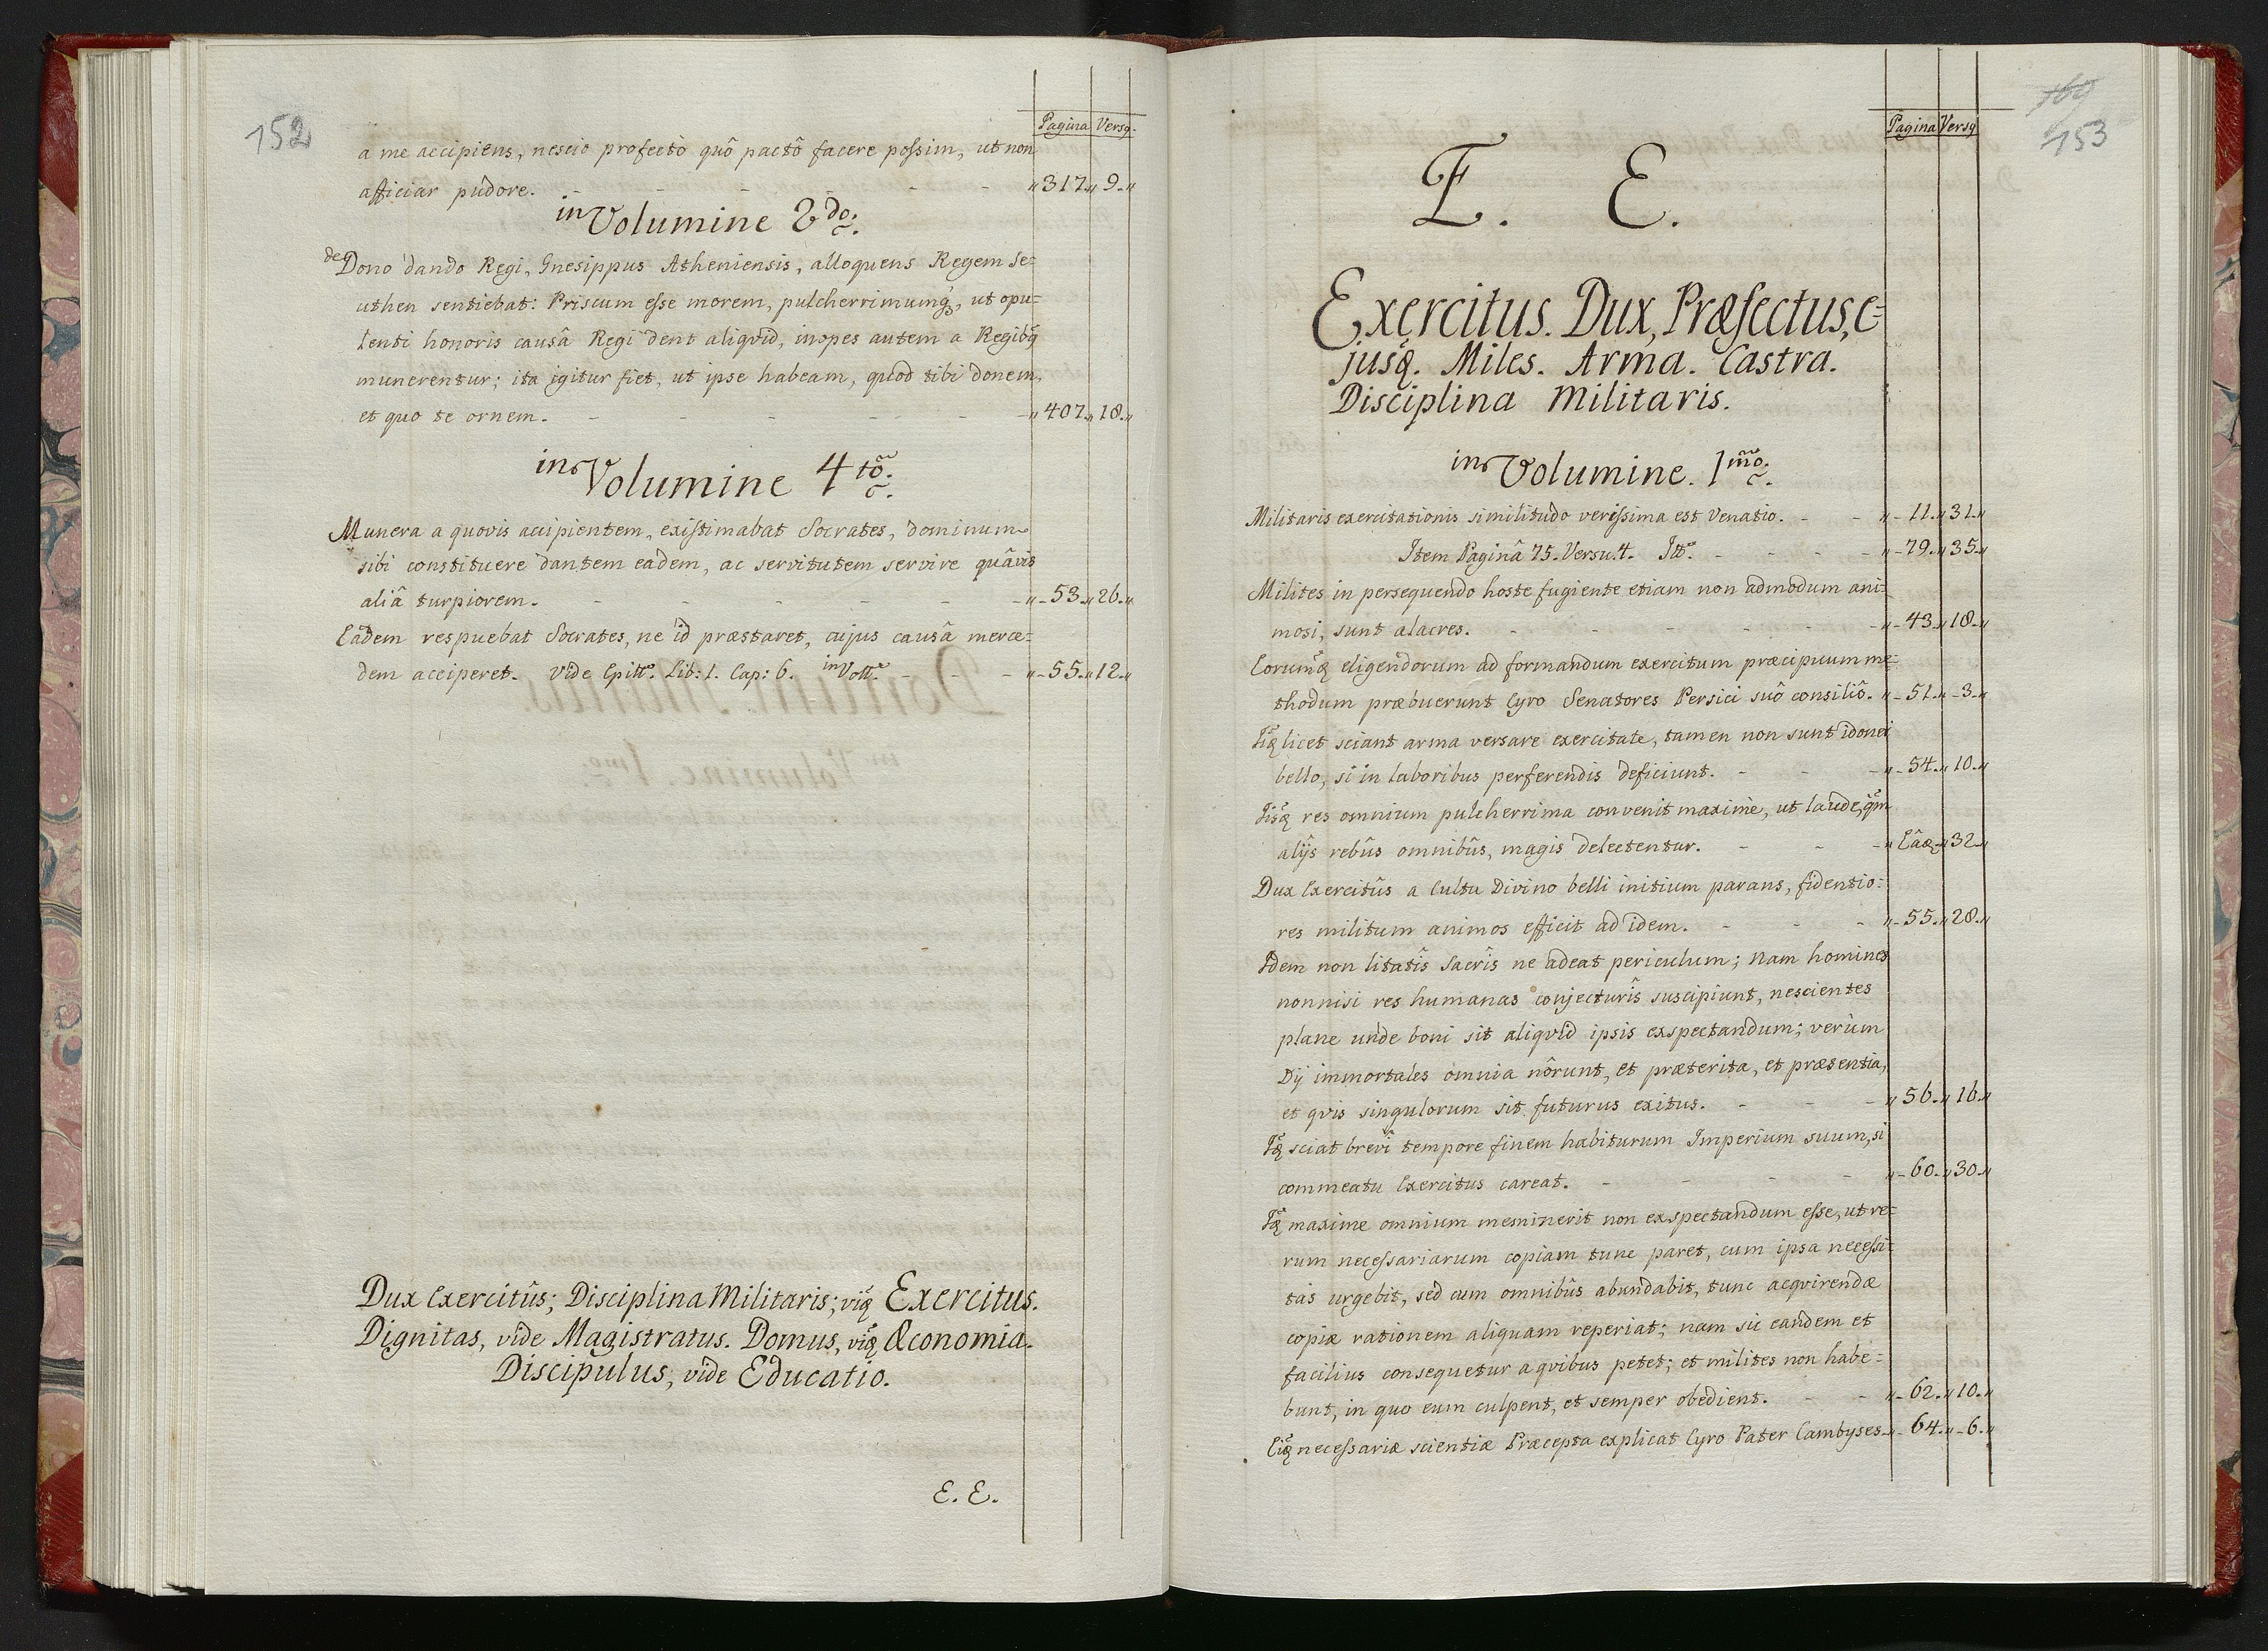 152
Pagina Versq.
a me accipiens, nescio profectò quô pactô facere possim, ut non
afficiar pudore. - - - - - - „317„ 9„
in Volumine 2do:
de Dono dando Regi, Gnesippus Atheniensis, alloquens Regem Se=
uthen sentiebat: Priscum esse morem, pulcherrimumq, ut opu=
lenti honoris causâ Regi dent aliqvid, inopes autem a Regibq
munerentur; ita igitur fiet, ut ipse habeam, quod tibi donem,
et quo te ornem. - - - - - - „407„18„
in Volumine 4to:
Munera a quovis accipientem, existimabat Socrates, dominum
sibi constituere dantem eadem, ac servitutem servire quâvis
aliâ turpiorem. - - - - - - „-53„26„
Eadem respuebat Socrates, ne id præstaret, cujus causâ merce=
dem acciperet. Vide Epitt. Lib: 1. Cap: 6. in Voll. - - - „-55„12„
Dux Exercitûs; Disciplina Militaris; viq Exercitus.
Dignitas, vide Magistratus. Domus, viq Œconomia.
Discipulus, vide Educatio.
E. E.
169
153
Pagina Versq
E. E.
Exercitus. Dux, Præfectus, e=
jusq. Miles. Arma. Castra.
Disciplina Militaris.
in Volumine. 1mo.
Militaris exercitationis similitudo verissima est Venatio. - - „-11„31„
Item Paginâ 75. Versu. 4. Itt. - - - - „-79„35„
Milites in persequendo hoste fugiente etiam non admodum ani=
mosi, sunt alacres. - - - - - „-43„18„
Eorumq eligendorum ad formandum exercitum præcipuum me=
thodum præbuerunt Cyro Senatores Persici suô consiliô. „-51„-3„
Iiq licet sciant arma versare exercitate, tamen non sunt idonei
bello, si in laboribus perferendis deficiunt. - - - „-54„10„
Iisq res omnium pulcherrima convenit maxime, ut laude, qm
alijs rebûs omnibûs, magis delectentur. - - - „Eâq„32„
Dux Exercitûs a Cultu Divino belli initium parans, fidentio=
res militum animos efficit ad idem. - - - „-55„28„
Idem non litatîs Sacrîs ne adeat periculum; Nam homines
nonnisi res humanas conjecturîs suscipiunt, nescientes
plane unde boni sit aliqvid ipsis exspectandum; verùm
Dij immortales omnia nôrunt, et præterita, et præsentia,
et qvis singulorum sit futurus exitus. - - - „56„16„
Iq sciat brevi tempore finem habiturum Imperium suum, si
commeatu Exercitus careat. - - - - „-60„30„
Iq maxime omnium meminerit non exspectandum esse, ut re=
rum necessariarum copiam tunc paret, cum ipsa necessi=
tas urgebit, sed cum omnibûs abundabit, tunc acqvirendæ
copiæ rationem aliquam reperiat; nam sic eandem et
facilius consequetur a qvibus petet; et milites non habe=
bunt, in quo eum culpent, et semper obedient. - - „-62„10„
Eiq necessariæ scientiæ Præcepta explicat Cyro Pater Cambyses „-64„-6„